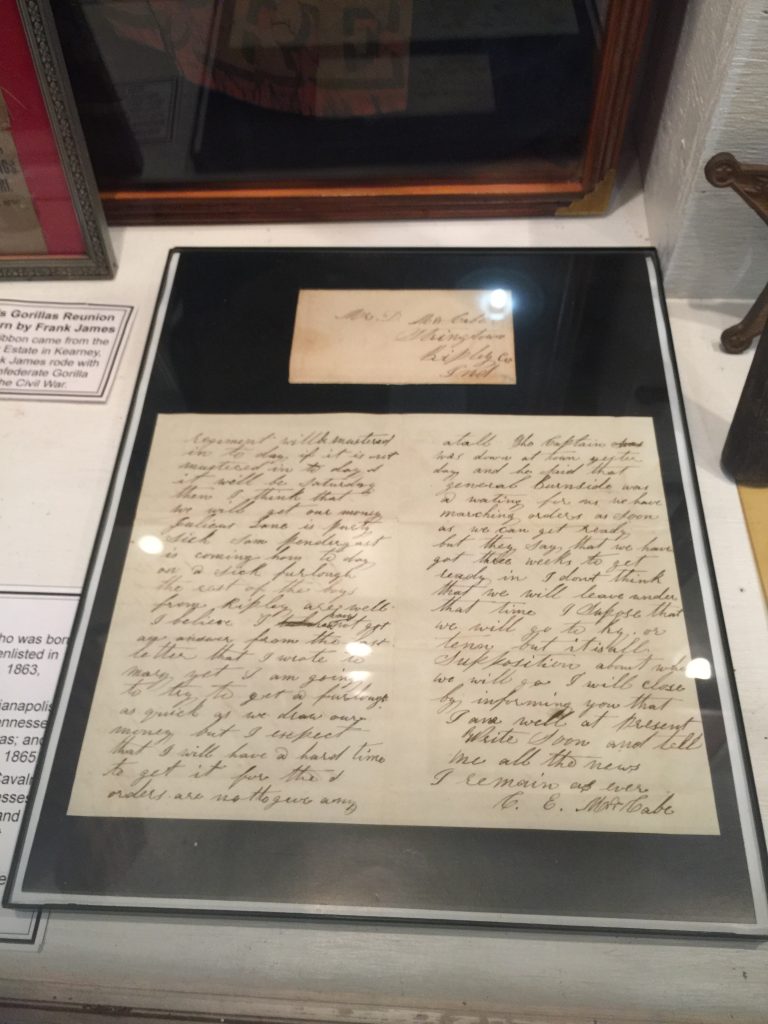 's Gorillas Reunion
rn by Frank James
ibbon came from the
Estate in Kearney,
k James rode with
nfederate Gorilla
he Civil War.
ho was born
enlisted in
1863,
ianapolis
ennesse
as; and
1865
Cavalr
and
Mr. McCabe
Ripley Co
Ind
regiment will be mustered
in to day if it is not
mustered in to day
it will be Saturday
then I think that
we will get our money
Julious Lane is purty
sick Sam Pendergast
is coming hom to day
on a sick furlough
the rest of the boys
from Ripley are well
I believe I got
an answer from the
letter that I wrote to
mary yet I am going
to try to get a furlough
as quick as we draw our
money but I expect
that I will have a hard time
to get it for the
orders are not to give any
atall the Captain
was down at town yester
day and he said that
general Burnside was
a wating for us we have
marching orders as soon
as we can get ready
but they say that we have
got three weeks to get
ready in I dont think
that we will leave under
that time I supose that
we will go to Ky. or
tenn but it is all
Supposition about
we will go I will close
by informing you that
I am well at present
Write Soon and tell
me all the news
I remain as ever
C. E. McCabe